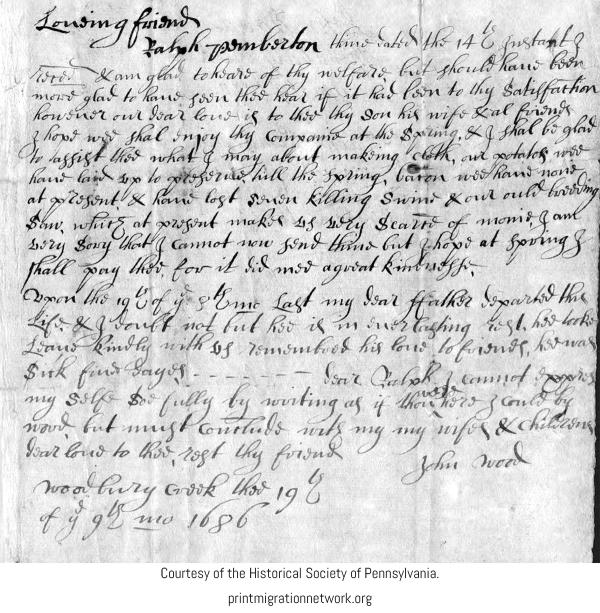 Loveing friend
Ralph Pemberton thine dated the 14th Instant I
Reced & am glad to heare of thy welfare, but should have been
more glad to have seen thee hear if it had been to thy Satisfaction
however our dear love is to thee thy son his wife & al friends
I hope wee shal enjoy thy Companie at the Spring, & I shal be glad
to assist thee what I may about makeing Cloth, our potatos wee
have laid vp to preserve till the Spring, bacon wee have none
at present & have lost seven killing Swine & our ould breeding
Saw, which at present makes vs very Scarce of monie, I am
very Sory that I cannot now send thine but I hope at Spring I
shall pay thee, for it did mee a great kindnesse,
Vpon the 19th of ye 8th mo Last my dear ffather departed this
Life, & I doubt not but hee is in everlasting rest, hee tooke
Leave kindly with vs remembred his love to friends, hee was
Sick five dayes - - - - - - - - - - dear Ralph I cannot express
my Selfe Soe fully by writing as if thou were here I could by
word, but must Conclude with my my wifes & Childrens
dear love to thee, rest thy friend
John Wood
Woodbury Creek thee 19th
of ye 9th mo 1686
Courtesy of the Historical Society of Pennsylvania.
printmigrationnetwork.org